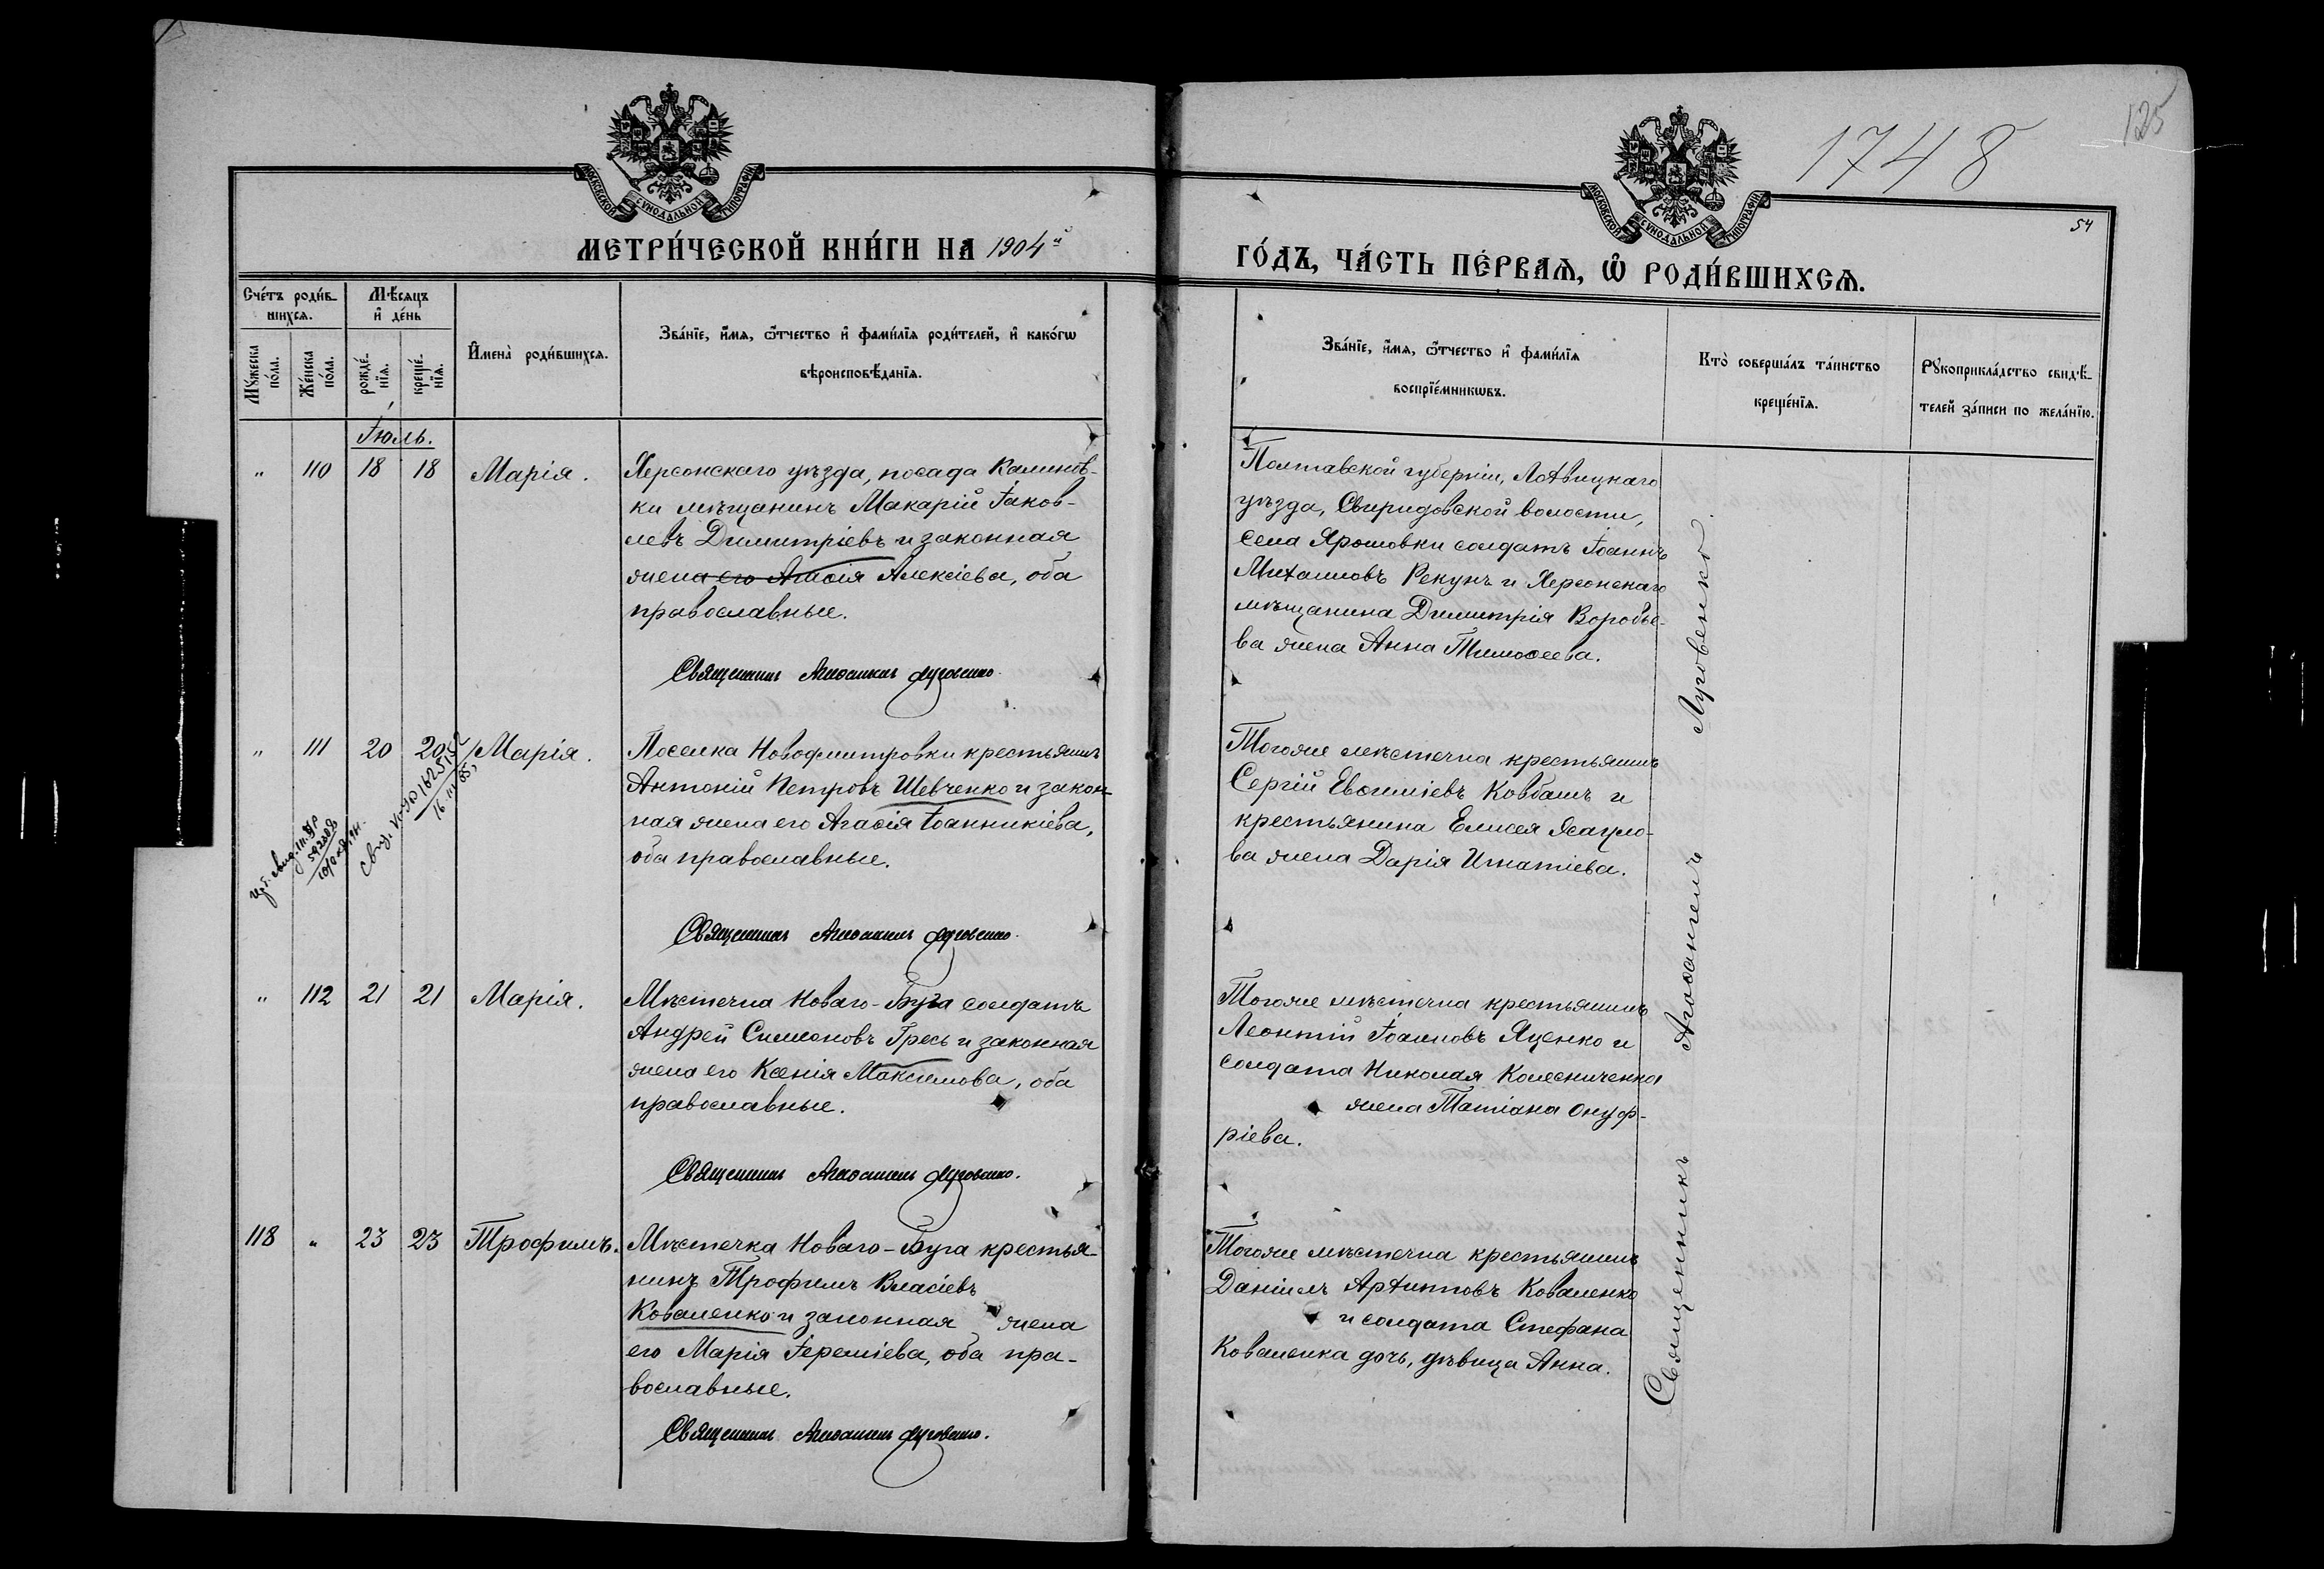 1748
125
54
МОСКОВСКОЙ СУНОДАЛЬНОЙ ТИПОГРАФІИ
МОСКОВСКОЙ СУНОДАЛЬНОЙ ТИПОГРАФІИ
МЕТРИ́ЧЕСКОЙ КНИ́ГИ НА 1904й
ГО́ДЪ, ЧА́СТЬ ПЕ́РВАѦ, Ѡ҆ РОДИ́ВШИХСѦ.
Сче́тъ роди́в-
шихсѧ.
Мѣ́сѧцъ
и҆ де́нь
Мꙋ́жеска
по́ла.
Же́нска
по́ла.
рожде́-
нїѧ.
креще́-
нїѧ.
И҆мена̀ роди́вшихсѧ.
Зва́нїе, и҆́мѧ, ѻ҆́тчество и҆ фами́лїѧ роди́телей, и҆ како́гѡ
вѣроисповѣ́данїѧ.
Зва́нїе, и҆́мѧ, ѻ҆́тчество и҆ фами́лїѧ
воспрїе́мникѡвъ.
Кто̀ соверша́лъ та́инство
креще́нїѧ.
Рꙋкоприкла́дство свидѣ́-
телей за́писи по жела́нїю.
Іюль.
" 110 18 18 Марія.
Херсонскаго уѣзда, посада Калинов-
ки мѣщанинъ Макарій Іаков-
левъ Димитріевъ и законная
жена его Агаѳія Алексіева, оба
православные.
Священникъ Агаѳангелъ Луговенко.
Полтавской губерніи, Лохвицкаго
уѣзда, Свиридовской волости,
села Ярошовки солдатъ Іоаннъ
Михаиловъ Рекунъ и Херсонскаго
мѣщанина Димитрія Воробье-
ва жена Анна Тимоѳеева.
" 111 20 20 Марія.
Поселка Новодмитровки крестьянинъ
Антоній Петровъ Шевченко и закон-
ная жена его Агаѳія Іоанникіева,
оба православные.
Священникъ Агаѳангелъ Луговенко.
Тогоже мѣстечка крестьянинъ
Сергій Евѳиміевъ Ковбашъ и
крестьянина Елисея Ясауло-
ва жена Дарія Игнатіева.
" 112 21 21 Марія.
Мѣстечка Новаго-Буга солдатъ
Андрей Симоновъ Гресь и законная
жена его Ксенія Максимова, оба
православные.
Священникъ Агаѳангелъ Луговенко.
Тогоже мѣстечка крестьянинъ
Леонтій Іоанновъ Яценко и
солдата Николая Колесниченка
жена Татіана Онуф-
ріева.
118 " 23 23 Трофимъ.
Мѣстечка Новаго-Буга крестья-
нинъ Трофимъ Власіевъ
Коваленко и законная жена
его Марія Іереміева, оба пра-
вославные.
Священникъ Агаѳангелъ Луговенко.
Тогоже мѣстечка крестьянинъ
Даніилъ Архиповъ Коваленко
и солдата Стефана
Коваленка дочь, дѣвица Анна.
Священникъ Агаѳангелъ Луговенко.